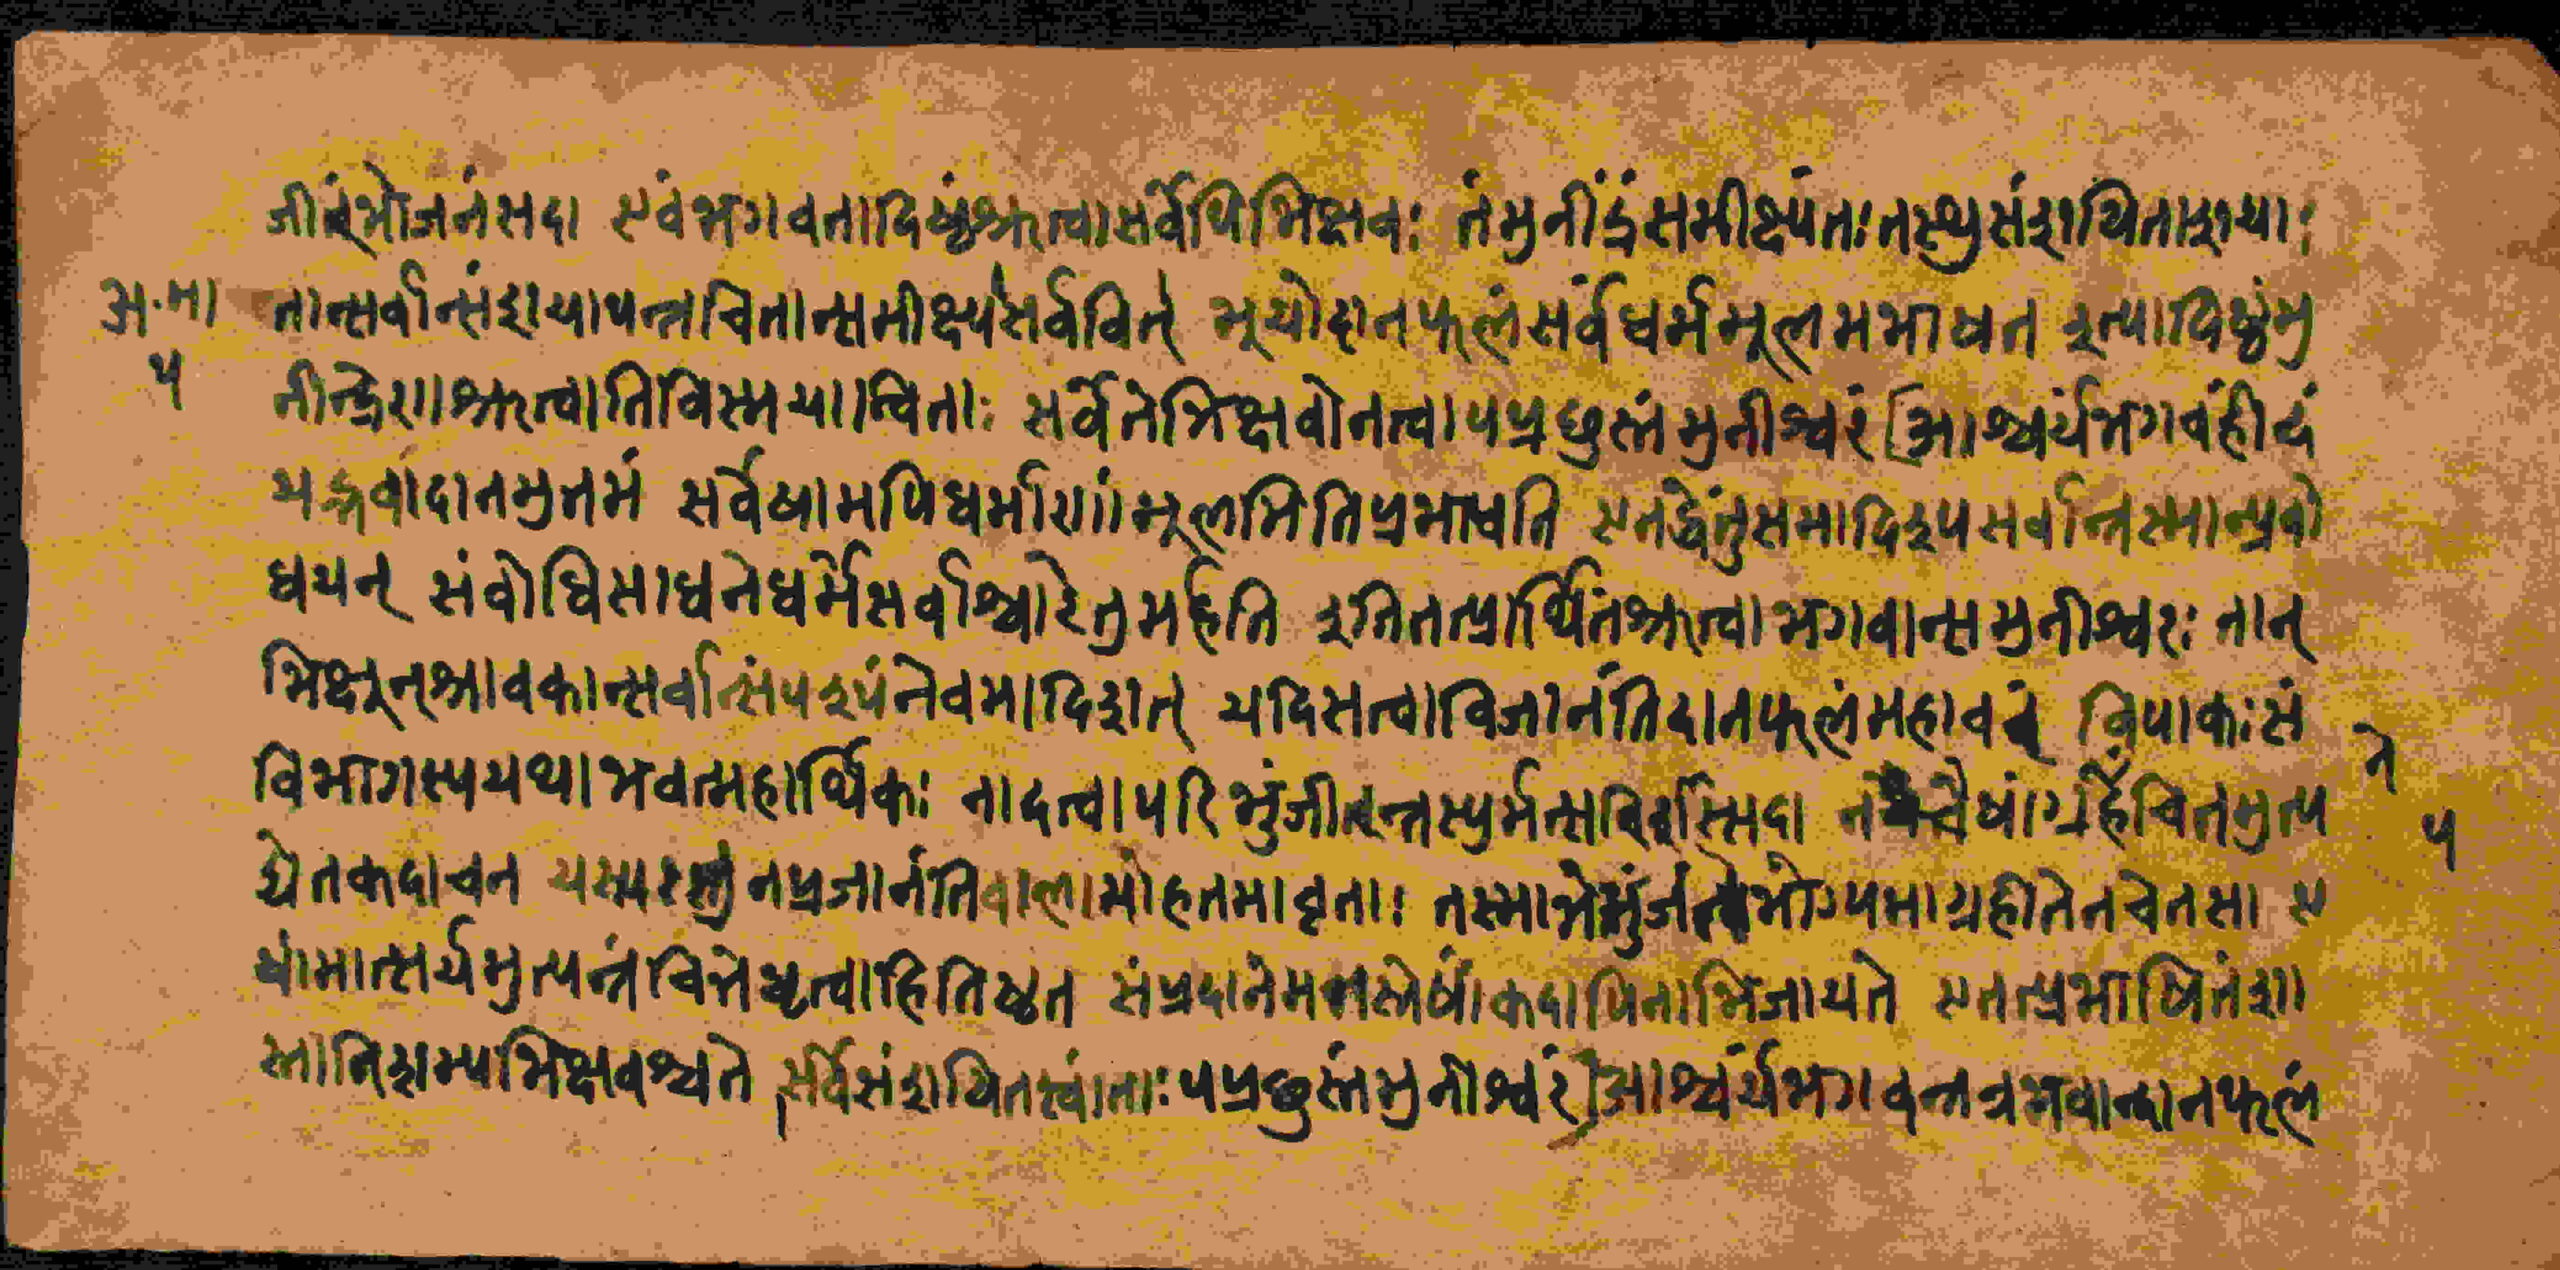 जीरन्भोजनंसदा एवंभगवतादिष्टंश्रुत्वासर्वेपिभिक्षवः तंमुनींद्रंसमीक्ष्यंतःतस्थुसंशयिताशयाः
अ.मा तान्सर्वान्संशयापन्नचितान्समीक्ष्यसर्ववित् भूयोदानफलंसर्वधर्ममूलमभाषत इत्यादिष्टंमु
५ नीन्द्रेणाश्रुत्वातिविस्मयान्विताः सर्वेतेभिक्षवोनत्वापप्रछुस्तंमुनीश्वरं आश्चर्यंभगवंहीदं
यद्भवांदानमुतमं सर्वेषामपिधर्माणांमूलमितिप्रभाषति एतद्धेतुंसमादिश्यसर्वान्नस्मान्प्रबो
धयन् संबोधिसाधनेधर्मेसर्वाश्चारेतुमर्हति इतितत्प्रार्थितंश्रुत्वाभगवान्समुनीश्वरः तान्
भिक्षून्श्रावकान्सर्वान्संपश्यंनेवमादिशत् यदिसत्वाविजानंतिदानफलंमहावरं विपाकःसं
विभागस्ययथाभवत्महार्थिकः नादत्वापरिभुंजीरन्नस्युर्मत्सरि सदा नचैषांर्ग्रहंचितमुत्प ने
द्येतकदाचन नप्रजानंतिबालामोहतमावृताः भोग्यमाग्रहीतेनचेतसा ए ५
षांमात्सर्यमुत्पन्नंचित्तेधृत्वाहितिष्ठत संप्रदाने कदापिनाभिजायते एतत्प्रभाषितंशा
स्तानिशम्यभिक्षवश्चते सर्वेसंशयितस्वांताःपप्रछुस्तंमुनीश्वरं आश्चर्यंभगवन्नत्रभवान्दानफलं